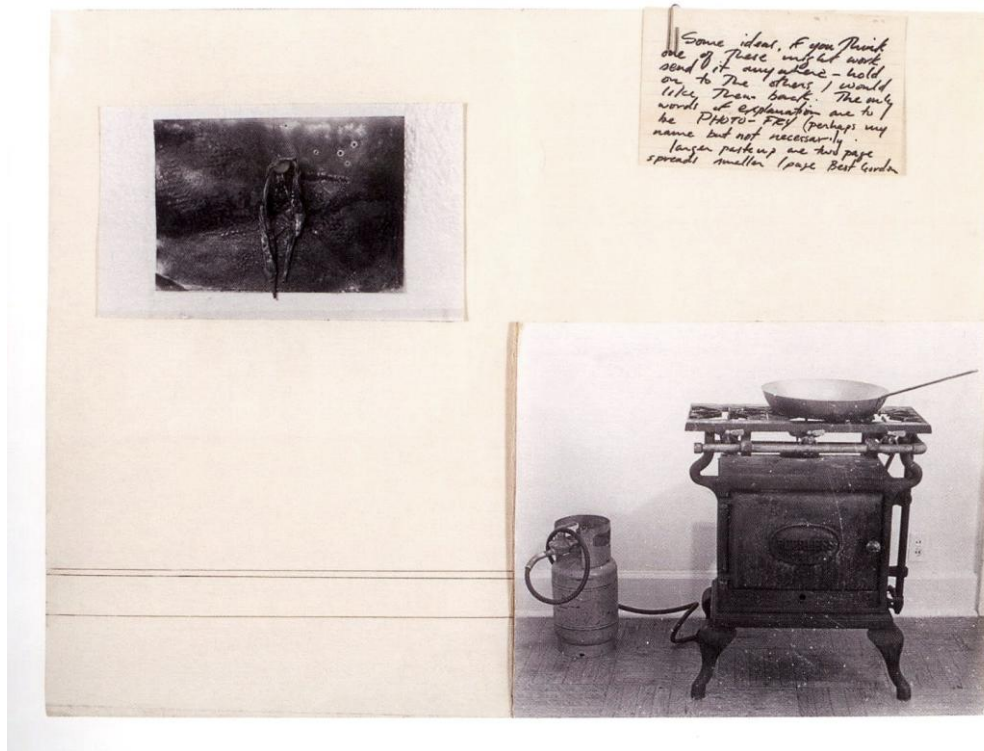 Some ideas, if you Think
one of These might work
send it anywhere - hold
on to The others, I would
like Them back. The only
words of explanation are to
be PHOTO-FRY (perhaps my
name but not necessarily.
larger pasteup are two page
spreads smaller 1 page Best Gordon